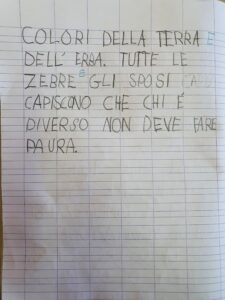 COLORI DELLA TERRA E
DELL' ERBA. TUTTE LE
ZEBRE E GLI SPOSI
CAPISCONO CHE CHI É
DIVERSO NON DEVE FARE
PAURA.